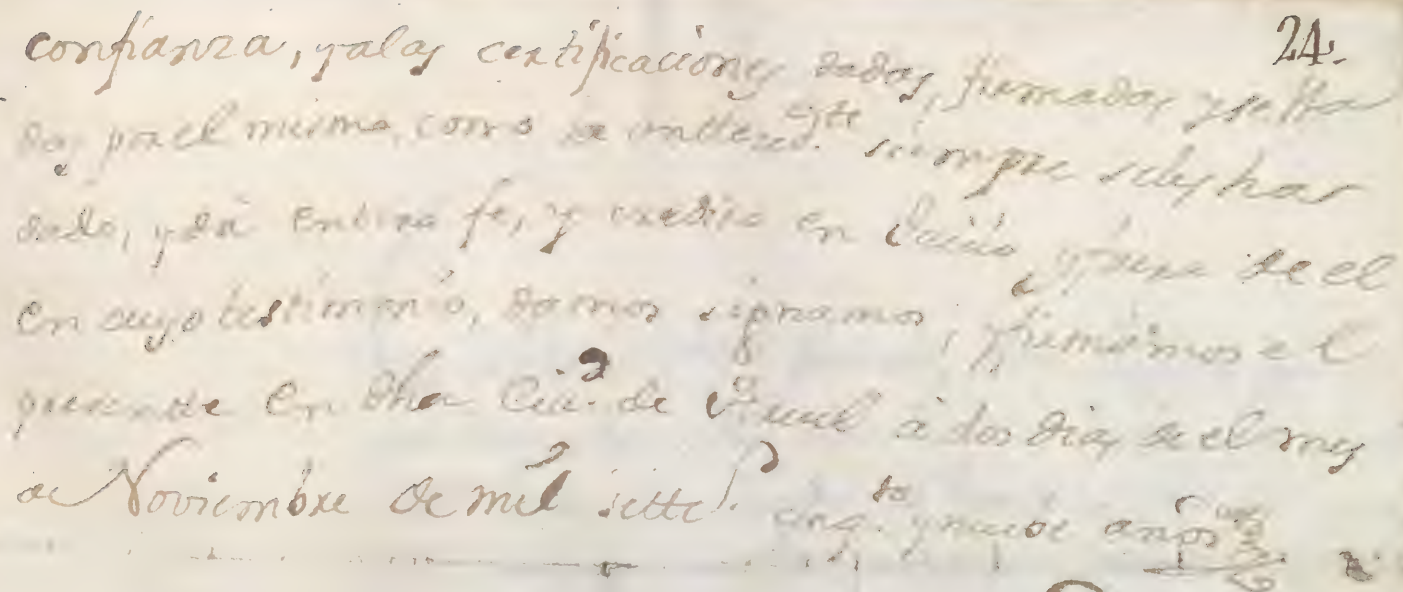 24.
confianza, y alas certificaciones dadas, firmadas y sella
das por el mismo, como se siempre seles ha
dado, y dá entera fe, y credito en Juicio, y fuera de el
En cuyo testimonio, damos signamos, y firmamos el
presente En dha Ciud. de Teruel à dos dias de el mes
de Noviembre de mil settec.s cinq.ta y nuebe años